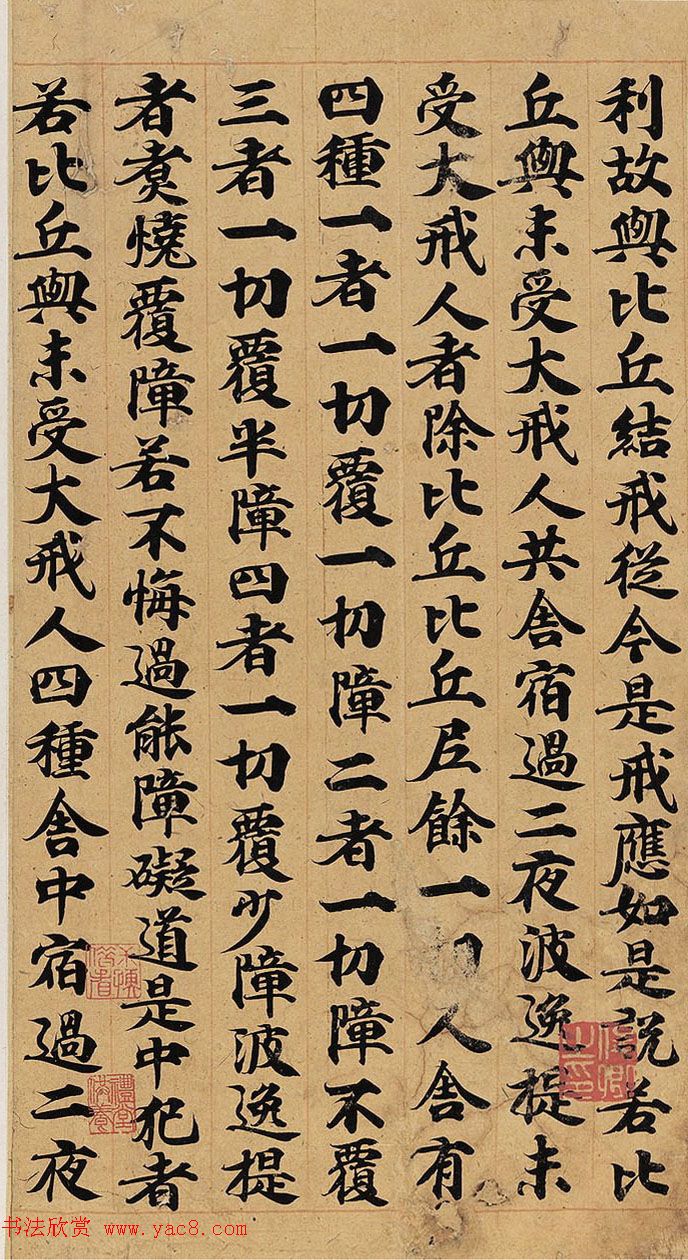 利故與比丘結戒從今是戒應如是說若比
丘與未受大戒人共舍宿過二夜波逸提未
受大戒人者除比丘比丘尼餘一切人舍有
四種一者一切覆一切障二者一切障不覆
三者一切覆半障四者一切覆少障波逸提
者煑燒覆障若不悔過能障礙道是中犯者
若比丘與未受大戒人四種舍中宿過二夜
书法欣赏 www.yac8.com